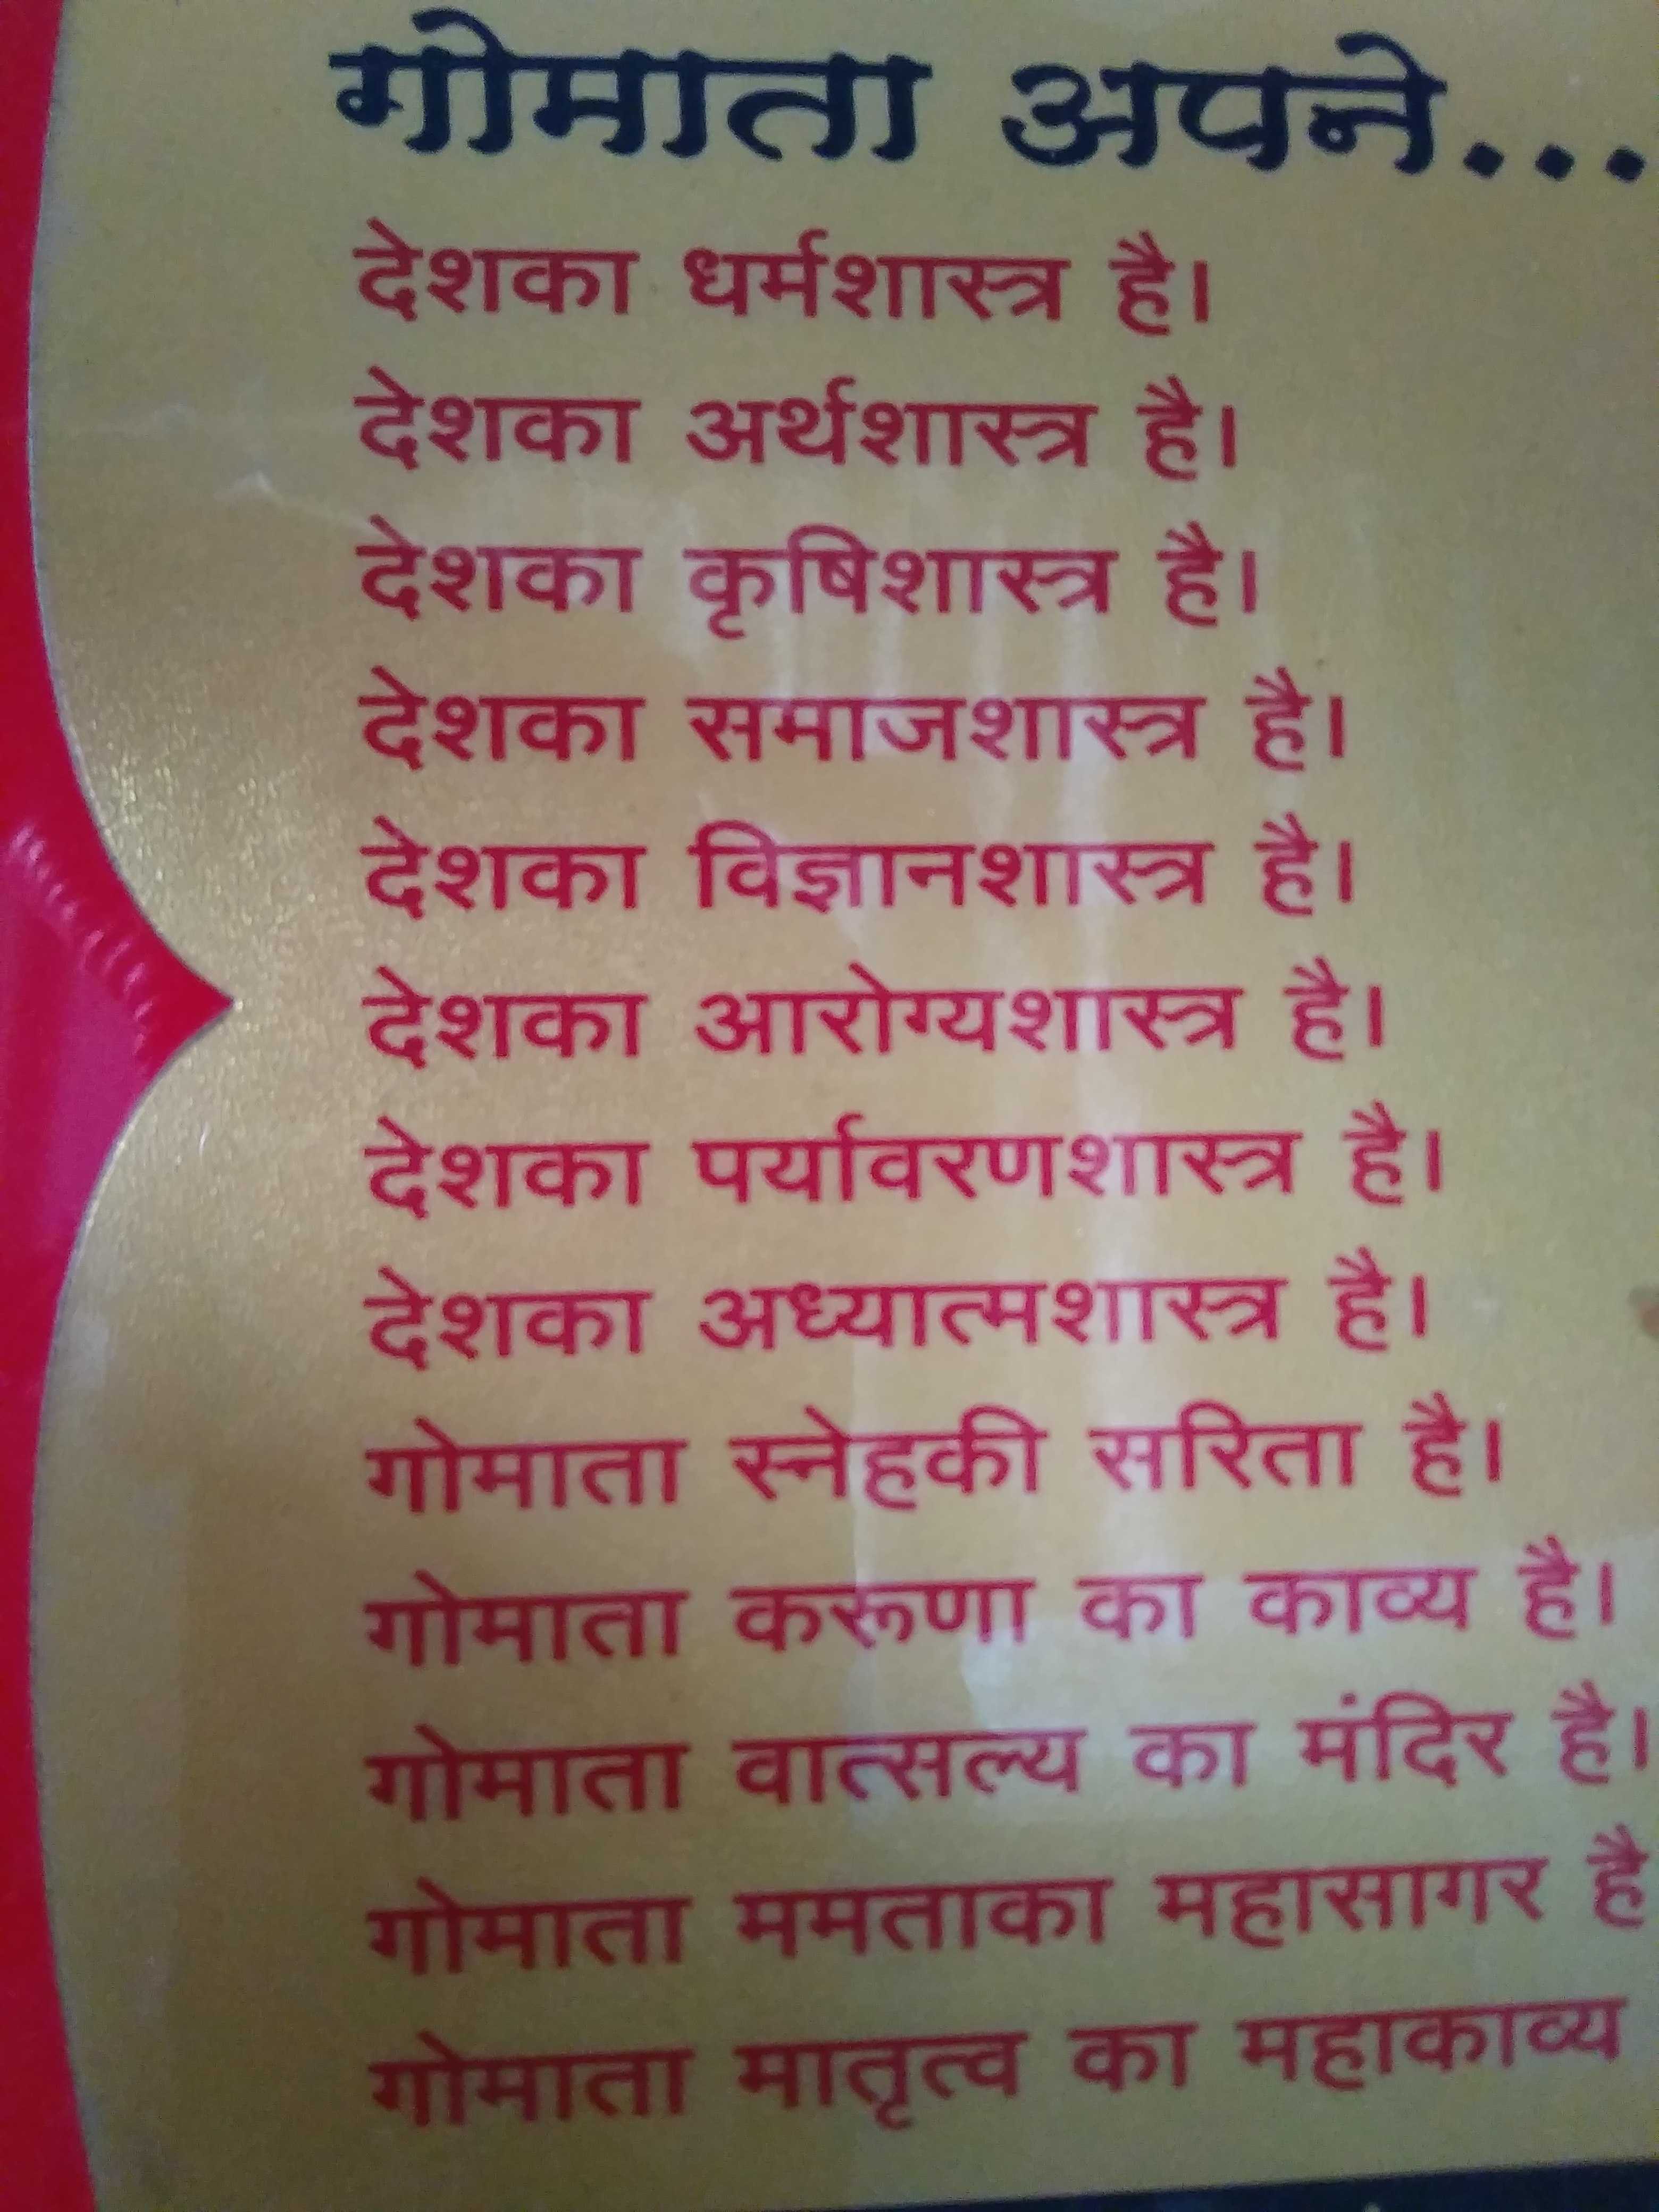 गोमाता अपने...
देशका धर्मशास्त्र है।
देशका अर्थशास्त्र है।
देशका कृषिशास्त्र है।
देशका समाजशास्त्र है।
देशका विज्ञानशास्त्र है।
देशका आरोग्यशास्त्र है।
देशका पर्यावरणशास्त्र है।
देशका अध्यात्मशास्त्र है।
गोमाता स्नेहकी सरिता है।
गोमाता करूणा का काव्य है।
गोमाता वात्सल्य का मंदिर है।
गोमाता ममताका महासागर है
गोमाता मातृत्व का महाकाव्य